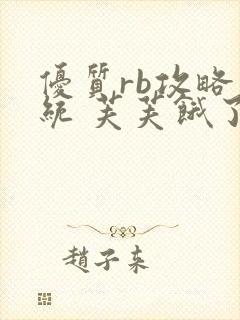 優質rb攻略
統 芙芙餓了
趙子来